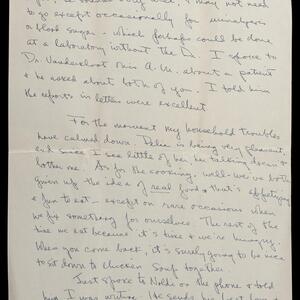 go except occasionally for urinalyses
& blood sugar - which perhaps could be done
at a laboratory without the D. I spoke to
Dr. Vanderkloot this A.M. about a patient
& he asked about both of you. I told him
the reports in letters were excellent
For the moment my household troubles
have calmed down. is being very pleasant,
and since I see little of her, her talking doesn't
bother me. As for the cooking, well-we've both
given up the idea of real food & that's appetizing
& fun to eat - except on rare occasions when
we fix something for ourselves. The rest of the
time we eat because it's time & we're hungry.
When you come back, it's surely going to be nice
to sit down to chicken soup together
Just spoke to on the phone & told
him I was writing. He sends